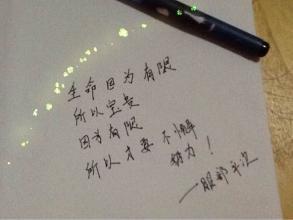 生命因为有限
所以宝贵
因为有限
所以才要不懈
努力！
一服部平次